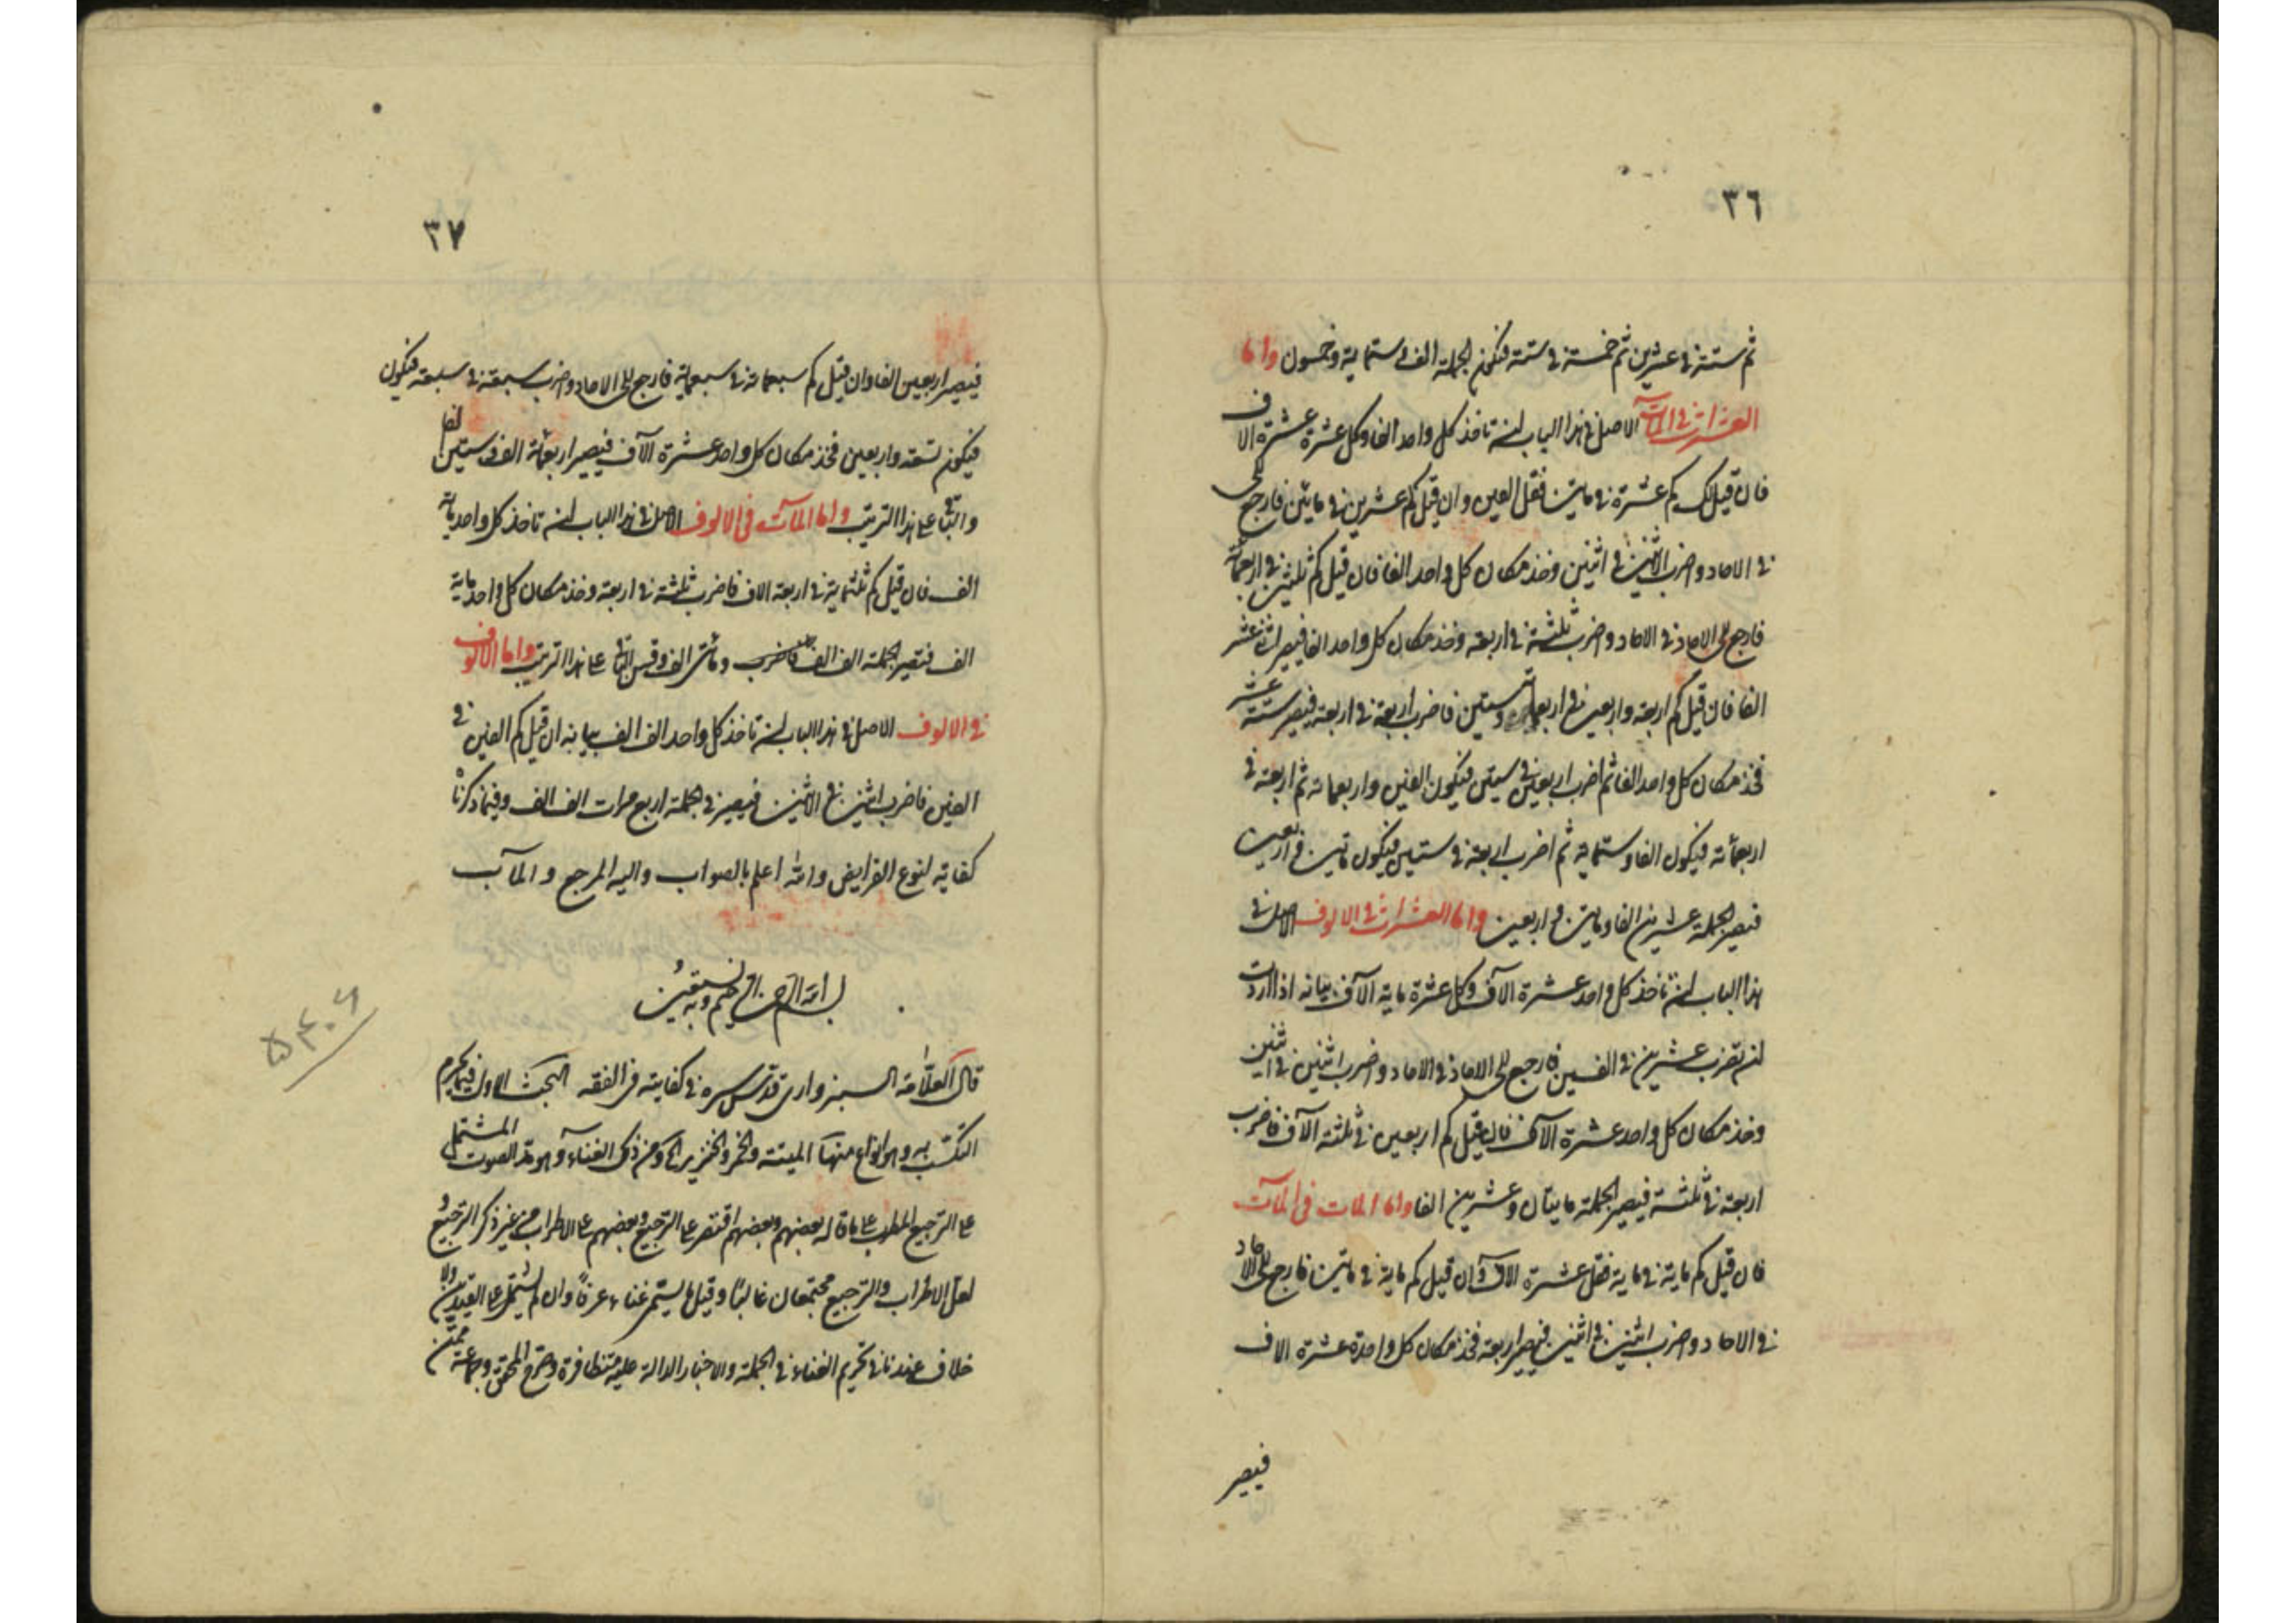 ٣٦
ثم ستة في عشرين ثم خمسة في ستة فيكون الجملة الف و ستماية وخمسون واما
العشرات في المآت الاصل في هذا الباب ان تاخذ كل واحد الفا وكل عشرة عشرة الاف
فان قيل لك كم عشرة في مايتين فقل الفين وان قيل كم عشرين في مايتين فارجع الى
في الاحاد واضرب الاثنين في اثنين وخذ مكان كل واحد الفا فان قيل كم ثلثين في اربعمائة
فارجع الى الاحاد في الاحاد واضرب ثلثة في اربعة وخذ مكان كل واحد الفا فيصير اثنا عشر
الفا فان قيل كم اربعة واربعين في اربعمائة وستين فاضرب اربعة في اربعة فيصير ستة عشر
فخذ مكان كل واحد الفا ثم اضرب اربعين في ستين فيكون الفين واربعمائة ثم اربعة في
اربعمائة فيكون الفا وستماية ثم اضرب اربعة في ستين فيكون مايتين و اربعين
فيصير الجملة عشرين الفا ومايتين و اربعين واما العشرات في الالوف الاصل في
هذا الباب ان تاخذ كل واحد عشرة الآف وكل عشرة ماية الآف بيانه اذا اردت
ان تضرب عشرين في الفين فارجع الى الاحاد في الاحاد واضرب اثنين في اثنين
وخذ مكان كل واحد عشرة الآف فان قيل كم اربعين في ثلثة الآف فاضرب
اربعة في ثلثة فيصير الجملة مايتان وعشرين الفا واما المات في المآت
فان قيل كم ماية في ماية فقل عشرة الاف وان قيل كم ماية في مايتين فارجع الى الاحاد
في الاحاد واضرب اثنين في اثنين فيصير اربعة فخذ مكان كل واحدة عشرة الاف
فيصير
٣٧
فيصير اربعين الفا وان قيل كم سبعمائة في سبعماية فارجع الى الاحاد واضرب سبعة في سبعة فيكون
فيكون تسعة واربعين فخذ مكان كل واحد عشرة الآف فيصير اربعمائة الف و ستين الفا
والباقي على هذا الترتيب واما المآت في الالوف الاصل في هذا الباب ان تاخذ كل واحد ماية
الف فان قيل كم ثلثماية في اربعة الاف فاضرب ثلثة في اربعة وخذ مكان كل واحد ماية
الف فتصير الجملة الف الف ومائتى الف وقس الباقي على هذا الترتيب واما الالوف
في الالوف الاصل في هذا الباب ان تاخذ كل واحد الف الف بيانه ان قيل كم الفين في
الفين فاضرب اثنين في الاثنين فيصير في الجملة اربع مرات الف الف وفيما ذكرنا
كفاية لنوع الفرايض والله اعلم بالصواب واليه المرجع و المآب
بسم الله الرحمن الرحيم وبه نستعين
قال العلامة السبزوارى قدس سره في كفايته في الفقه البحث الاول فيما يحرم
التكسب به وهو انواع منها الميتة والخمر والخنزير الى ومن ذلك الغناء وهو مد الصوت المشتمل
على الترجيع المطرب على ما قاله بعضهم وبعضهم اقتصر على الترجيع وبعضهم على الاطراب من غير ذكر الترجيع و
لعل الاطراب والترجيع مجتمعان غالبا وقيل ما يسمى غناء عرفا وان لم يشتمل على القيدين ولا
خلاف عندنا في تحريم الغناء في الجملة والاخبار الدالة عليه متظافرة وصرح المحقق وجماعة ممن
۵۳۰۶